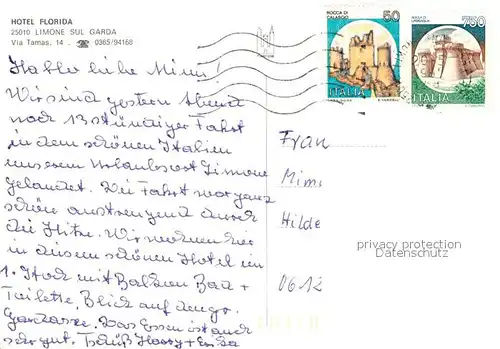 HOTEL FLORIDA
25010 LIMONE SUL GARDA
Via Tamas, 14 . ☎ 0365/94168
Hallo liebe Mimi!
Wir sind gestern Abend
nach 13stündiger Fahrt
in dem schönen Italien
unserem Urlaubsort Limone
gelandet. Die Fahrt war ganz
schön anstrengend durch
die Hitze. Wir wohnen hier
in diesem schönen Hotel im
1. Stock mit Balkon Bad +
Toilette, Blick auf
Gardasee. Das Essen ist auch
sehr gut. Tschüß Harry +
ROCCA DI
CALASCIO
50
ITALIA
750
ITALIA
Frau
Mimi
Hilde
0612
privacy protection
Datenschutz